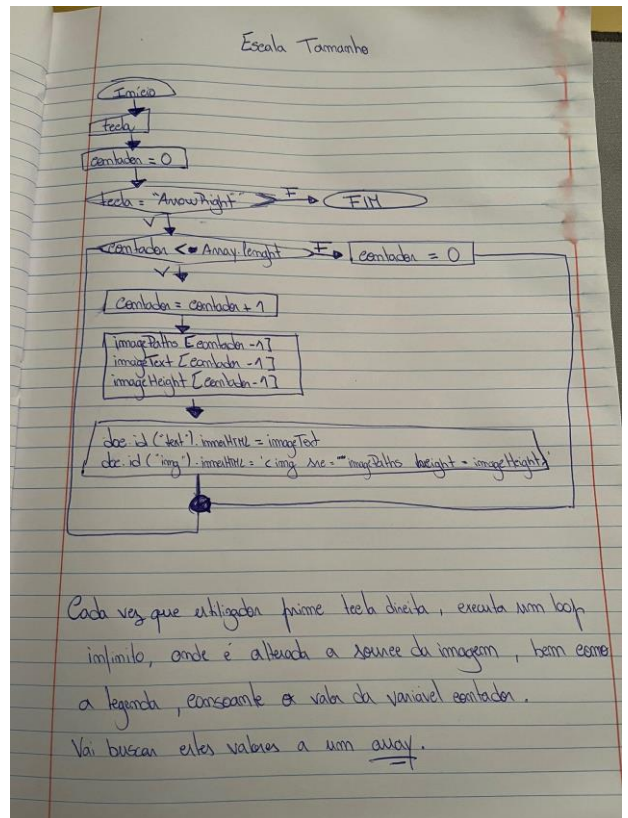 Escala Tamanho
Início
tecla
contador = 0
tecla = "ArrowRight"
F
FIM
V
contador <= Array.lenght
F
contador = 0
V
contador = contador + 1
imagePaths [contador -1]
imageText [contador -1]
imageHeight [contador -1]
doc.id ("text").innerHTML = imageText
doc.id ("img").innerHTML = '<img src = "" imagePaths height = imageHeight>'
Cada vez que utilizador prime tecla direita, executa um loop
infinito, onde é alterada a source da imagem, bem como
a legenda, consoante o valor da variável contador.
Vai buscar estes valores a um array.